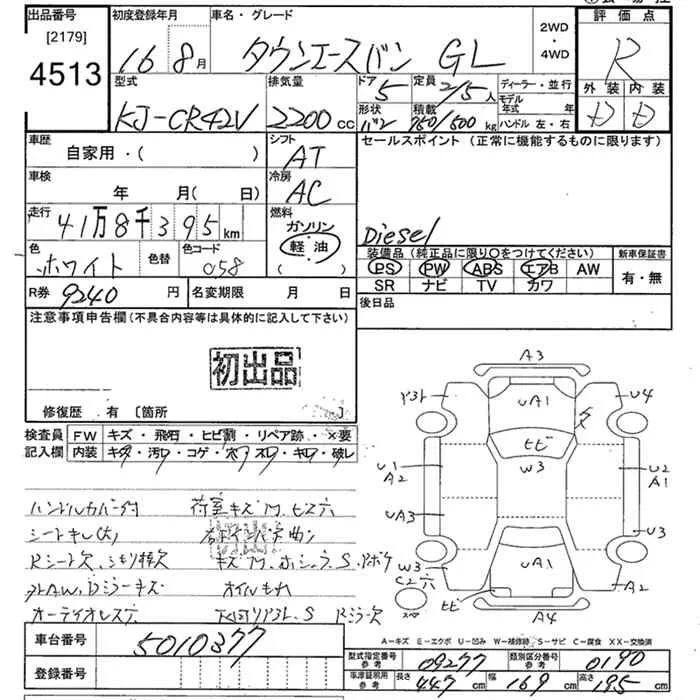 出品番号 初度登録年月 車名・グレード 2WD・4WD 評価点
[2179]
4513 16 8月 タウンエースバン GL R
型式 排気量 ドア 定員 ディーラー・並行 外装 内装
KJ-CR42V 2200cc 5 2/5人 モデル年式 年
形状 積載 ハンドル 左・右
バン 750/500kg
車歴 シフト セールスポイント(正常に機能するものに限ります)
自家用・( ) AT
車検 冷房
年 月( 日) AC
走行 燃料
41万8千395km ガソリン
軽油
( )
Diesel
色 色替 色コード
ホワイト 058
装備品(純正品に限り○をつけてください) 新車保証書
PS PW ABS エアB AW 有・無
SR ナビ TV カワ
R券 9240円 名変期限 月 日 後日品
注意事項申告欄(不具合内容等は具体的に記入して下さい)
初出品
修復歴 有 〔箇所 〕
検査員記入欄 FW キズ・飛石・ヒビ割・リペア跡・×要
内装 キズ・汚レ・コゲ・穴・スレ・キレ・破レ
ハンドルカバー付 荷室キズM.ビス穴
シートキレ(大)
オイルモレ
オーディオレス穴
A3
UA1 U4
ヒビ
W3
U1 U2
A2 A1
UA3 U3
W3 UA1
C2穴 A2
ヒビ A4
スペア
A-キズ E-エクボ U-凹み W-補修跡 S-サビ C-腐食 XX-交換済
車台番号 5010377
型式指定番号 参考 09277 類別区分番号 参考 0190
登録番号
車庫証明用 参考 長さ 447cm 幅 169cm 高さ 195cm